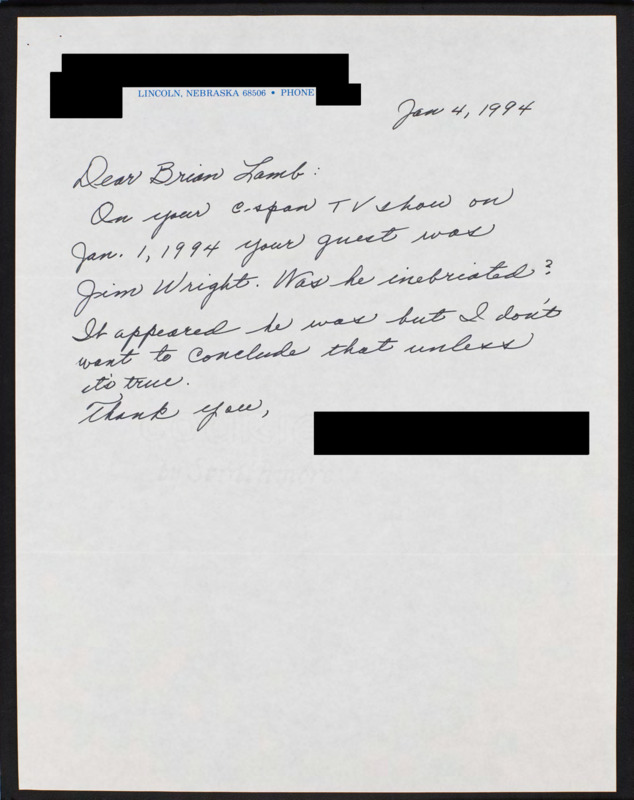 LINCOLN, NEBRASKA 68506 • PHONE
Jan 4, 1994
Dear Brian Lamb:
On your c-span TV show on
Jan. 1, 1994 your guest was
Jim Wright. Was he inebriated?
It appeared he was but I don't
want to conclude that unless
it's true.
Thank you,